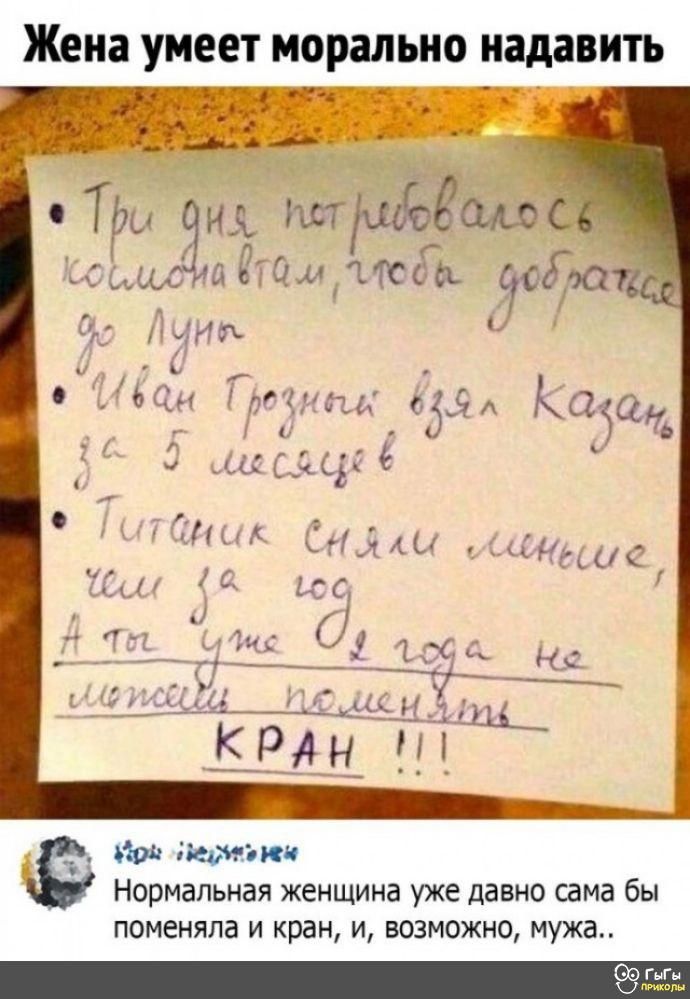 Жена умеет морально надавить
• Три дня потребовалось
космонавтам, чтобы добраться
до Луны
• Иван Грозный взял Казань
за 5 месяцев
• Титаник сняли меньше,
чем за год
А ты уже 2 года не
можешь поменять
КРАН !!!
Нормальная женщина уже давно сама бы
поменяла и кран, и, возможно, мужа..
ГыГы
приколы